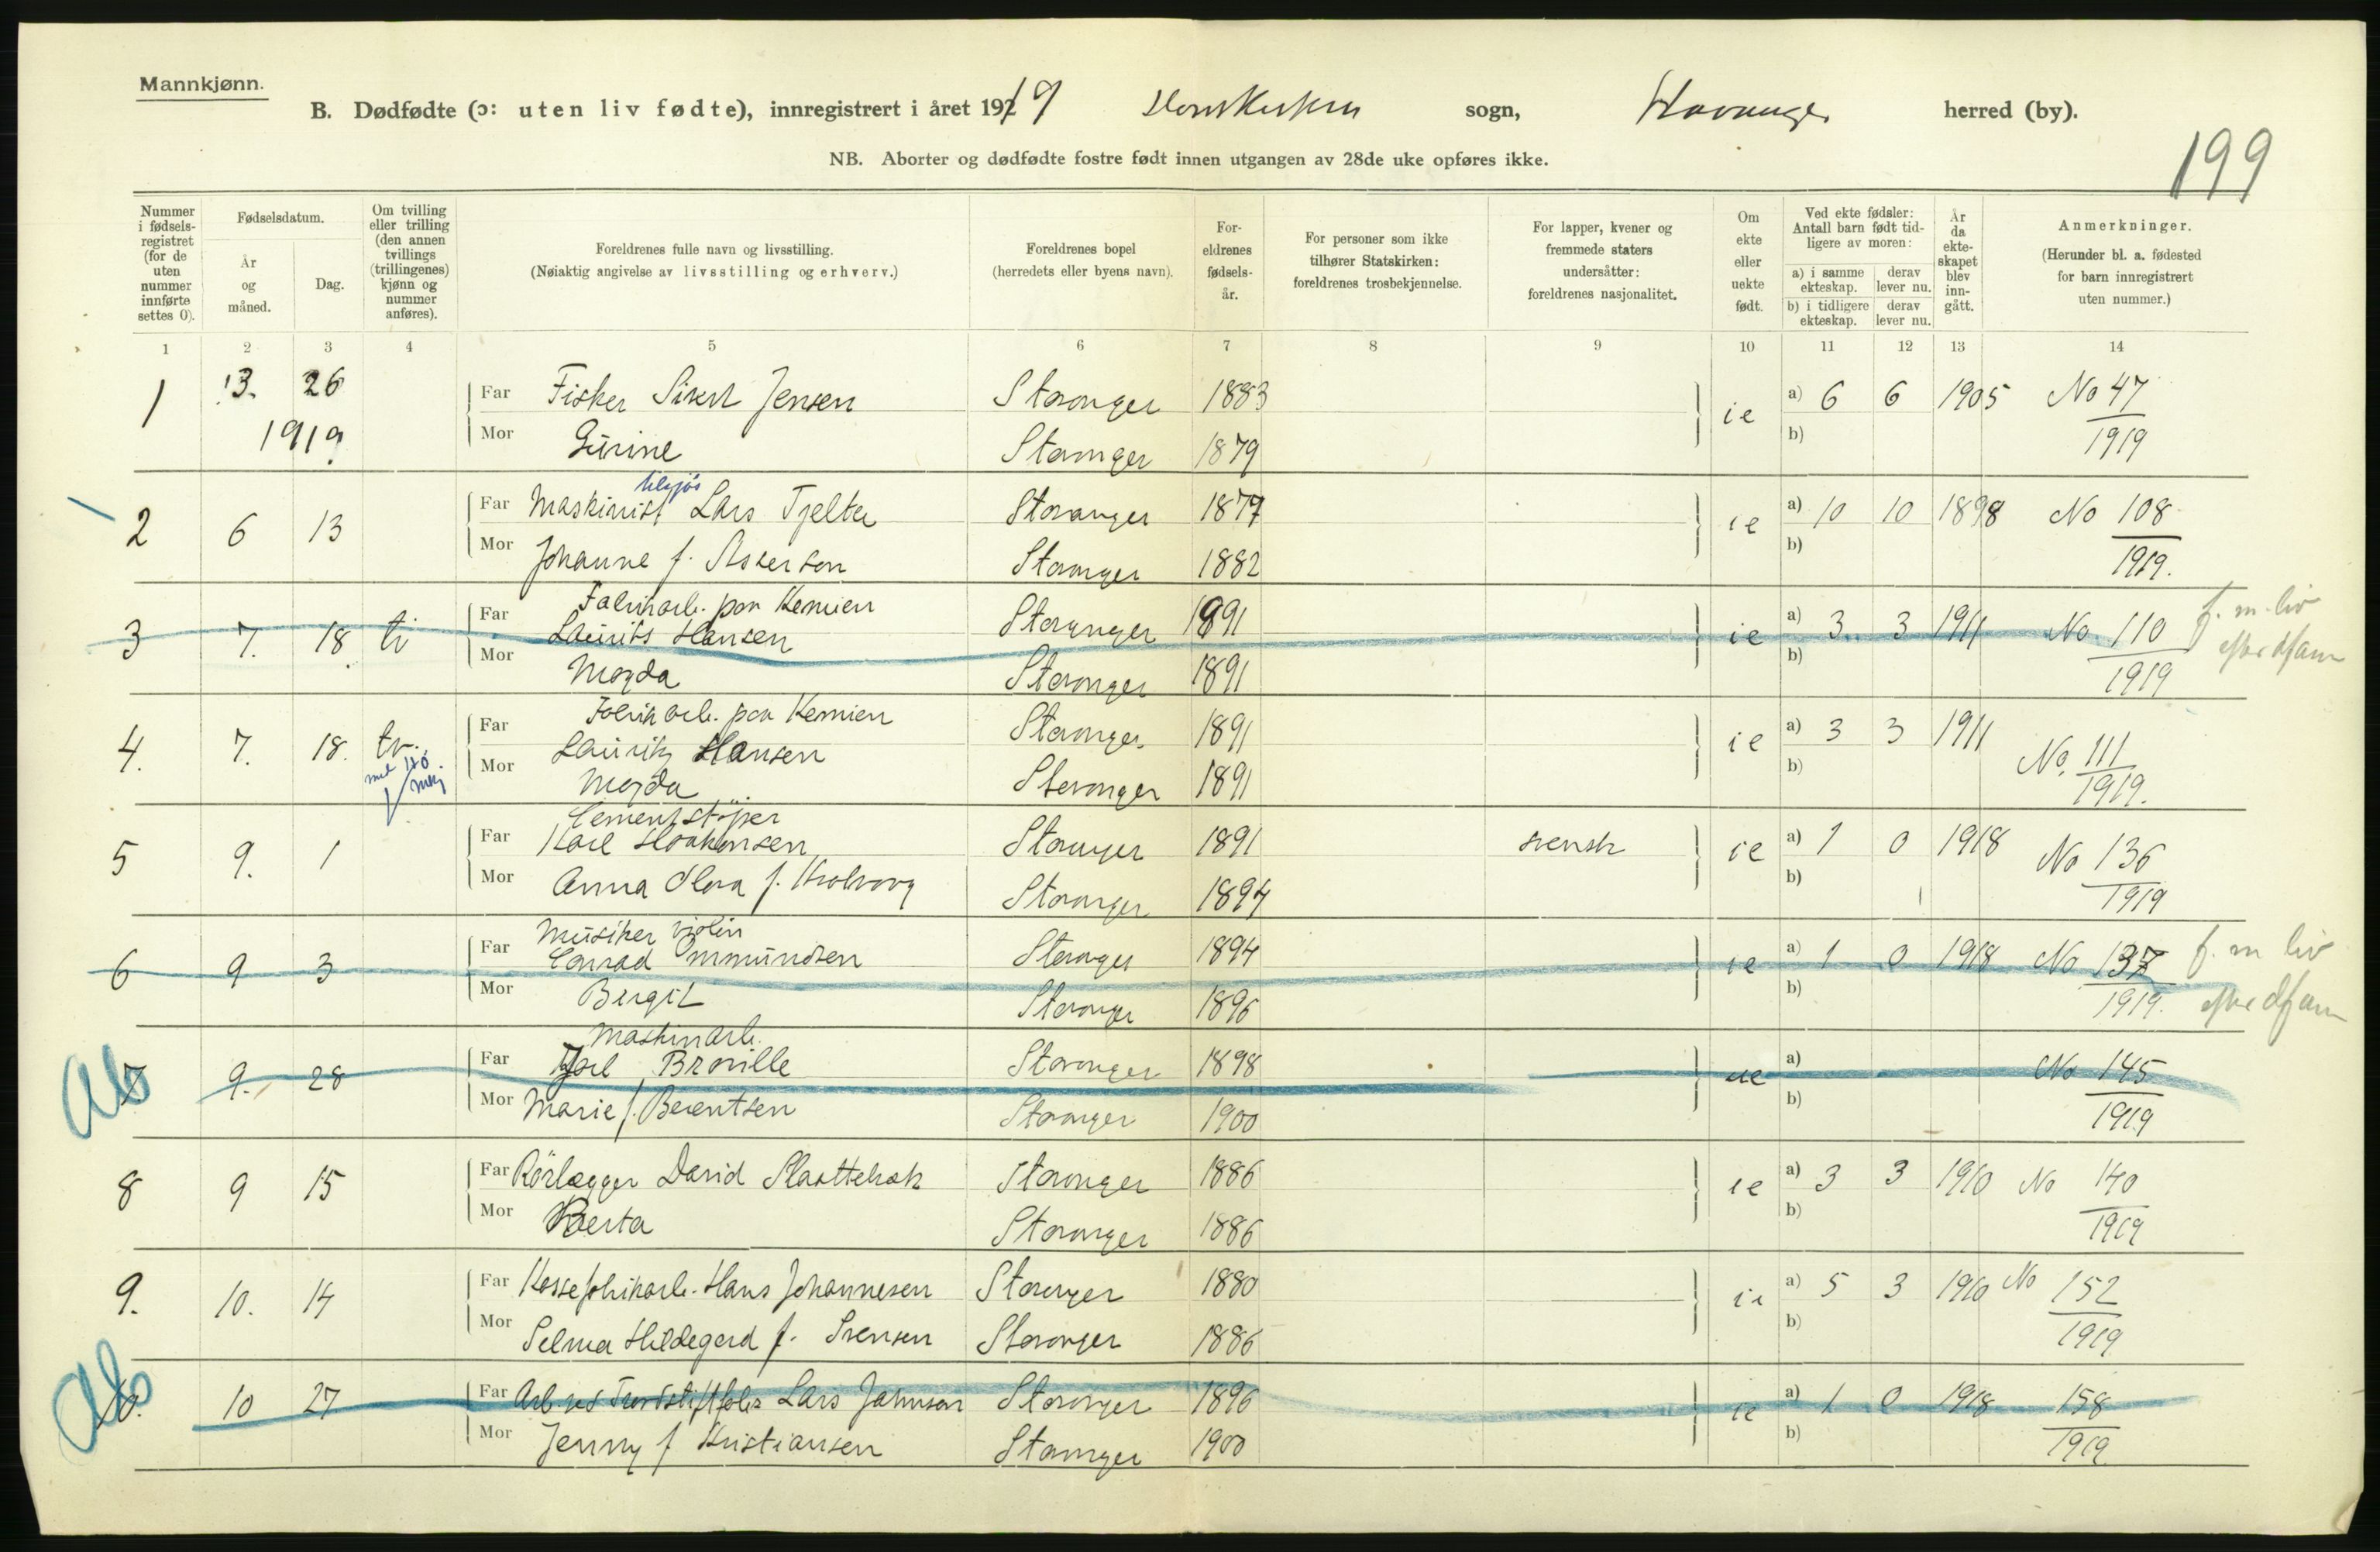 Mannkjønn.
B. Dødfødte (ɔ: uten liv fødte), innregistrert i året 1919 Domkirken sogn, Stavanger herred (by).
199
NB. Aborter og dødfødte fostre født innen utgangen av 28de uke opføres ikke.
Nummer i fødsels-registret (for de uten nummer innførte settes 0).
Fødselsdatum.
År og måned.
Dag.
Om tvilling eller trilling (den annen tvillings (trillingenes) kjønn og nummer anføres).
Foreldrenes fulle navn og livsstilling.
(Nøiaktig angivelse av livsstilling og erhverv.)
Foreldrenes bopel
(herredets eller byens navn).
For-eldrenes fødsels-år.
For personer som ikke tilhører Statskirken: foreldrenes trosbekjennelse.
For lapper, kvener og fremmede staters undersåtter: foreldrenes nasjonalitet.
Om ekte eller uekte født.
Ved ekte fødsler: Antall barn født tid-ligere av moren:
a) i samme ekteskap. derav lever nu.
b) i tidligere ekteskap. derav lever nu.
År da ekte-skapet blev inn-gått.
Anmerkninger.
(Herunder bl. a. fødested for barn innregistrert uten nummer.)
1 2 3 4 5 6 7 8 9 10 11 12 13 14
1 3. 26 Far Fisker Sivert Jensen Stavanger 1883 ie a) 6 6 1905 No 47
1919 Mor Gurine Stavanger 1879 b) 1919
tilsjøs
2 6 13 Far Maskinist Lars Tjelta Stavanger 1877 ie a) 10 10 1898 No 108
Mor Johanne f. Askerson Stavanger 1882 b) 1919.
Fabrikarb. paa Kemien
3 7. 18 tv Far Laurits Hansen Stavanger 1891 ie a) 3 3 1911 No 110 f. m. liv
Mor Magda Stavanger 1891 b) 1919
Fabrikarb. paa Kemien
4. 7. 18. tv. Far Lauritz Hansen Stavanger 1891 ie a) 3 3 1911 No. 111
med 110. Mor Magda Stavanger 1891 b) 1919.
Cementstøper
5 9. 1 Far Karl Haakonsen Stavanger 1891 svensk ie a) 1 0 1918 No 136
Mor Anna Stavanger 1894 b) 1919
Musiker violin
6 9 3 Far Conrad Ommundsen Stavanger 1894 ie a) 1 0 1918 No 137 f. m liv
Mor Birgit Stavanger 1896 b) 1919.
Maskinarb.
Ab 7 9. 28 Far Stavanger 1898 ue a) No 145
Mor Marie f. Berentsen Stavanger 1900 b) 1919
8 9 15 Far Rörlægger David Slaattebræk Stavanger 1886 ie a) 3 3 1910 No 140
Mor Berta Stavanger 1886 b) 1919
9. 10. 14 Far Kassefabrikarb. Hans Johannesen Stavanger 1880 ie a) 5 3 1910 No 152
Mor Selma Hildegard f. Svensen Stavanger 1886 b) 1919
Ab 10. 10 27 Far Lars Stavanger 1896 ie a) 1 0 1918 158
Mor Jenny f Kristiansen Stavanger 1900 b) 1919